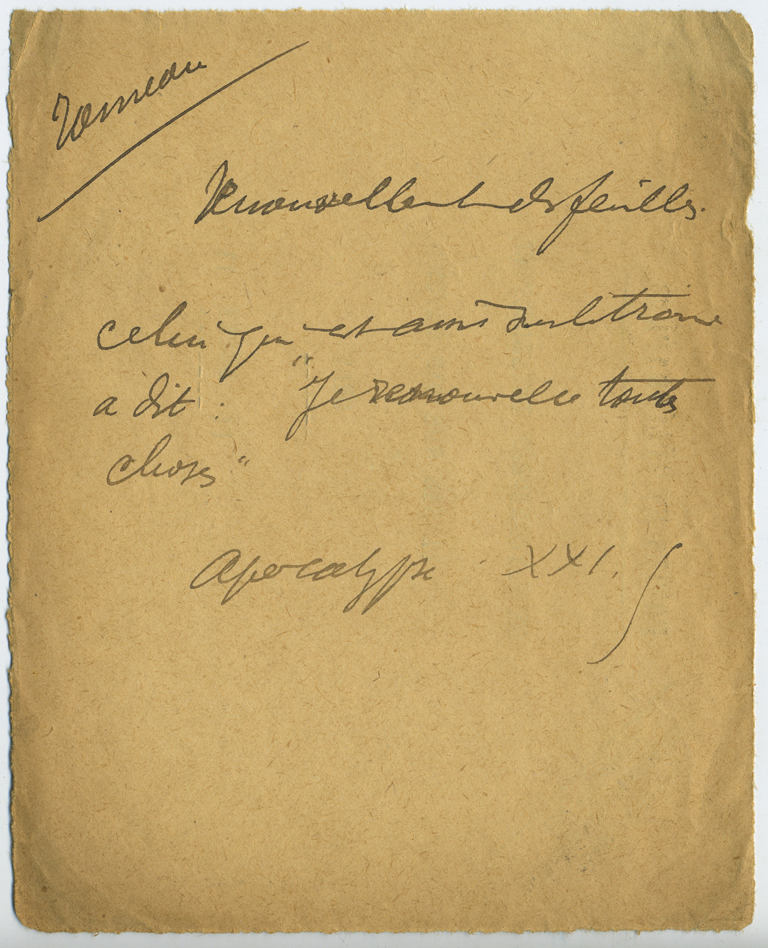 Rameau
Renouvellement des feuilles.
celui qui est assis sur le trone
a dit : "Je renouvelle toutes
choses"
Apocalypse XXI.